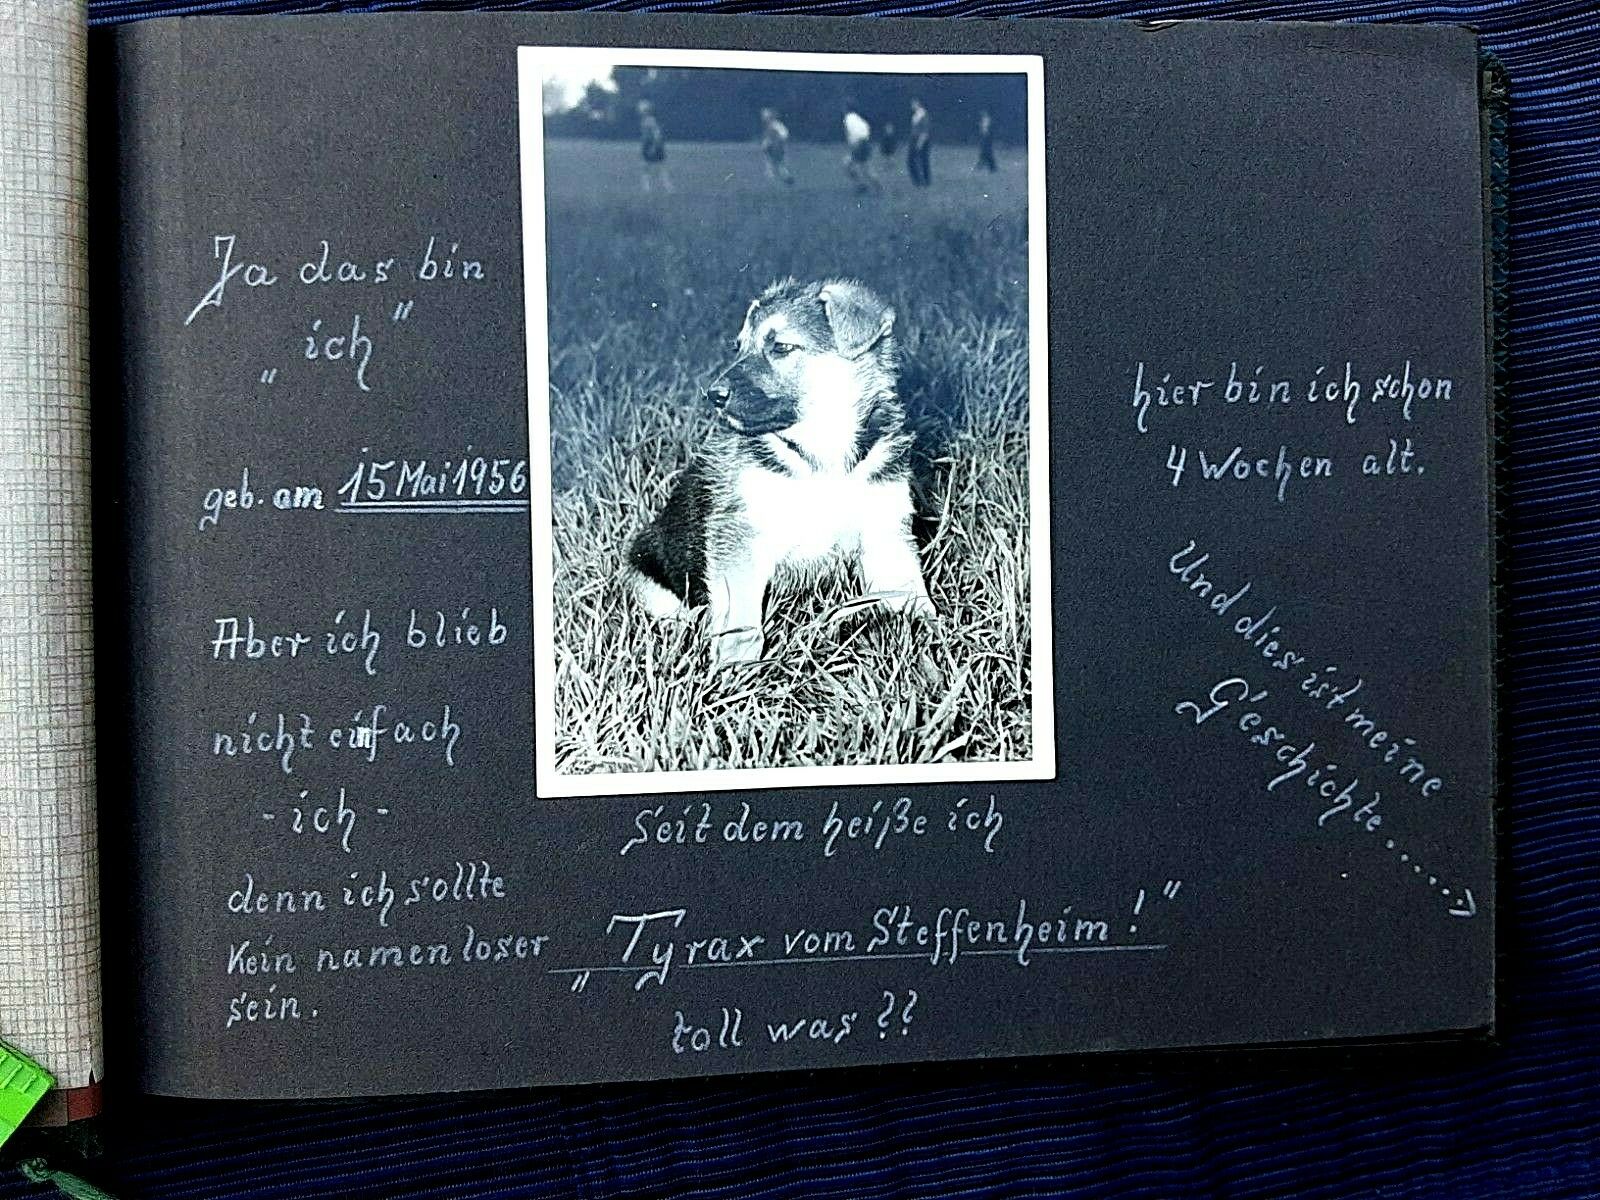 Ja das bin
„ich"
geb. am 15 Mai 1956
Aber ich blieb
nicht einfach
- ich -
denn ich sollte
kein namenloser
sein.
Seit dem heiße ich
„Tyrax vom Steffenheim!"
toll was??
hier bin ich schon
4 Wochen alt.
Und dies ist meine
Geschichte......→